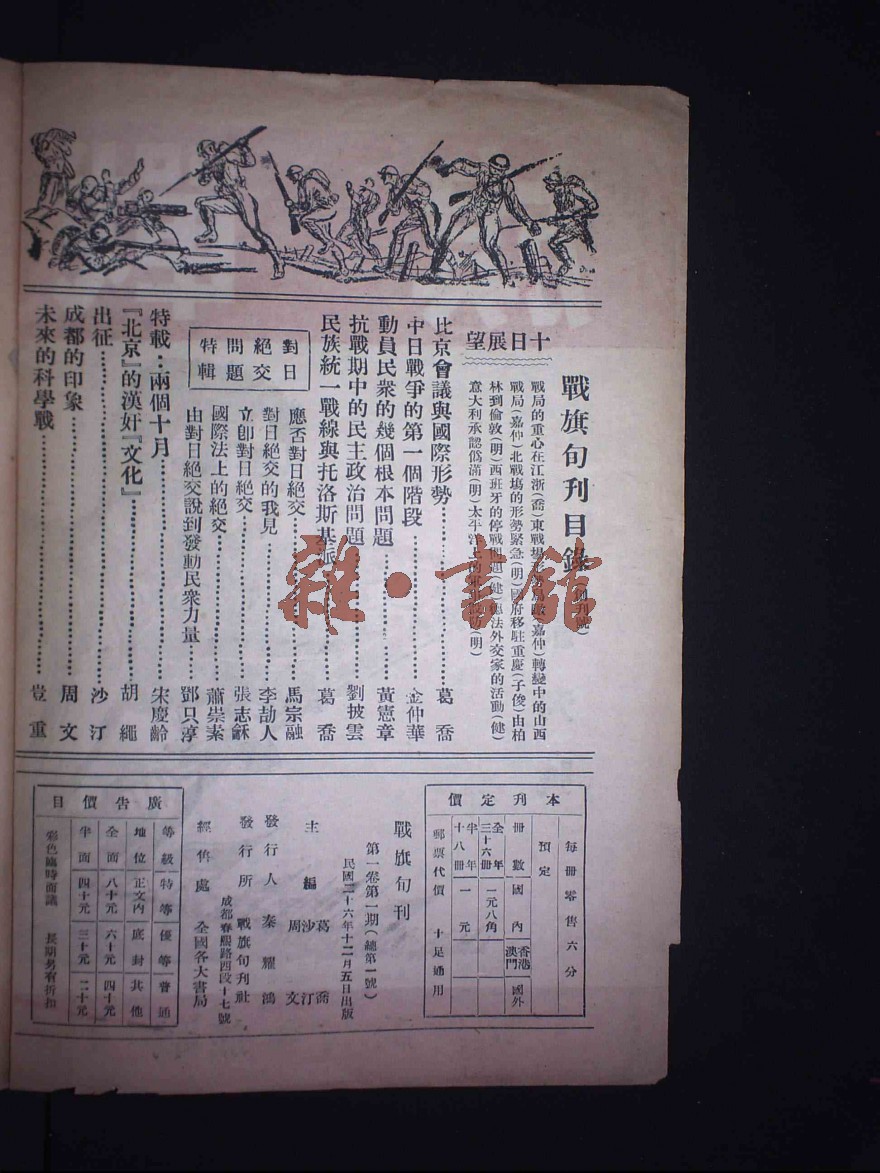 戰旗旬刊目錄(創刊號)
十日展望
戰局的重心在江浙(喬)東戰場形勢鳥瞰(嘉仲)轉變中的山西
戰局(嘉仲)北戰場的形勢緊急(明)國府移駐重慶(子俊)由柏
林到倫敦(明)西班牙的停戰問題(健)德法外交家的活動(健)
意大利承認僞滿(明)太平洋上的(明)
比京會議與國際形勢 葛喬
中日戰爭的第一個階段 金仲華
動員民衆的幾個根本問題 黃憲章
抗戰期中的民主政治問題 劉披雲
民族統一戰線與托洛斯基派 葛喬
對日絕交問題特輯
應否對日絕交 馬宗融
對日絕交的我見 李劼人
立卽對日絕交 張志龢
國際法上的絕交 蕭崇素
由對日絕交說到發動民衆力量 鄧只淳
特載:兩個十月 宋慶齡
『北京』的漢奸『文化』 胡繩
出征 沙汀
成都的印象 周文
未來的科學戰 豈重
本刊定價
每冊零售六分
預定 冊數 國內 香港澳門 國外
全年三十六冊 一元八角
半年十八冊 一元
郵票代價十足通用
戰旗旬刊
第一卷第一期(總第一號)
民國二十六年十二月五日出版
主編 葛喬 沙汀 周文
發行人 秦耀鴻
發行所 戰旗旬刊社
成都春熙路西段十七號
經售處 全國各大書局
廣告價目
等級 特等 優等 普通
地位 正文內 底封 其他
全面 八十元 六十元 四十元
半面 四十元 三十元 二十元
彩色臨時面議 長期另有折扣
雜·書館